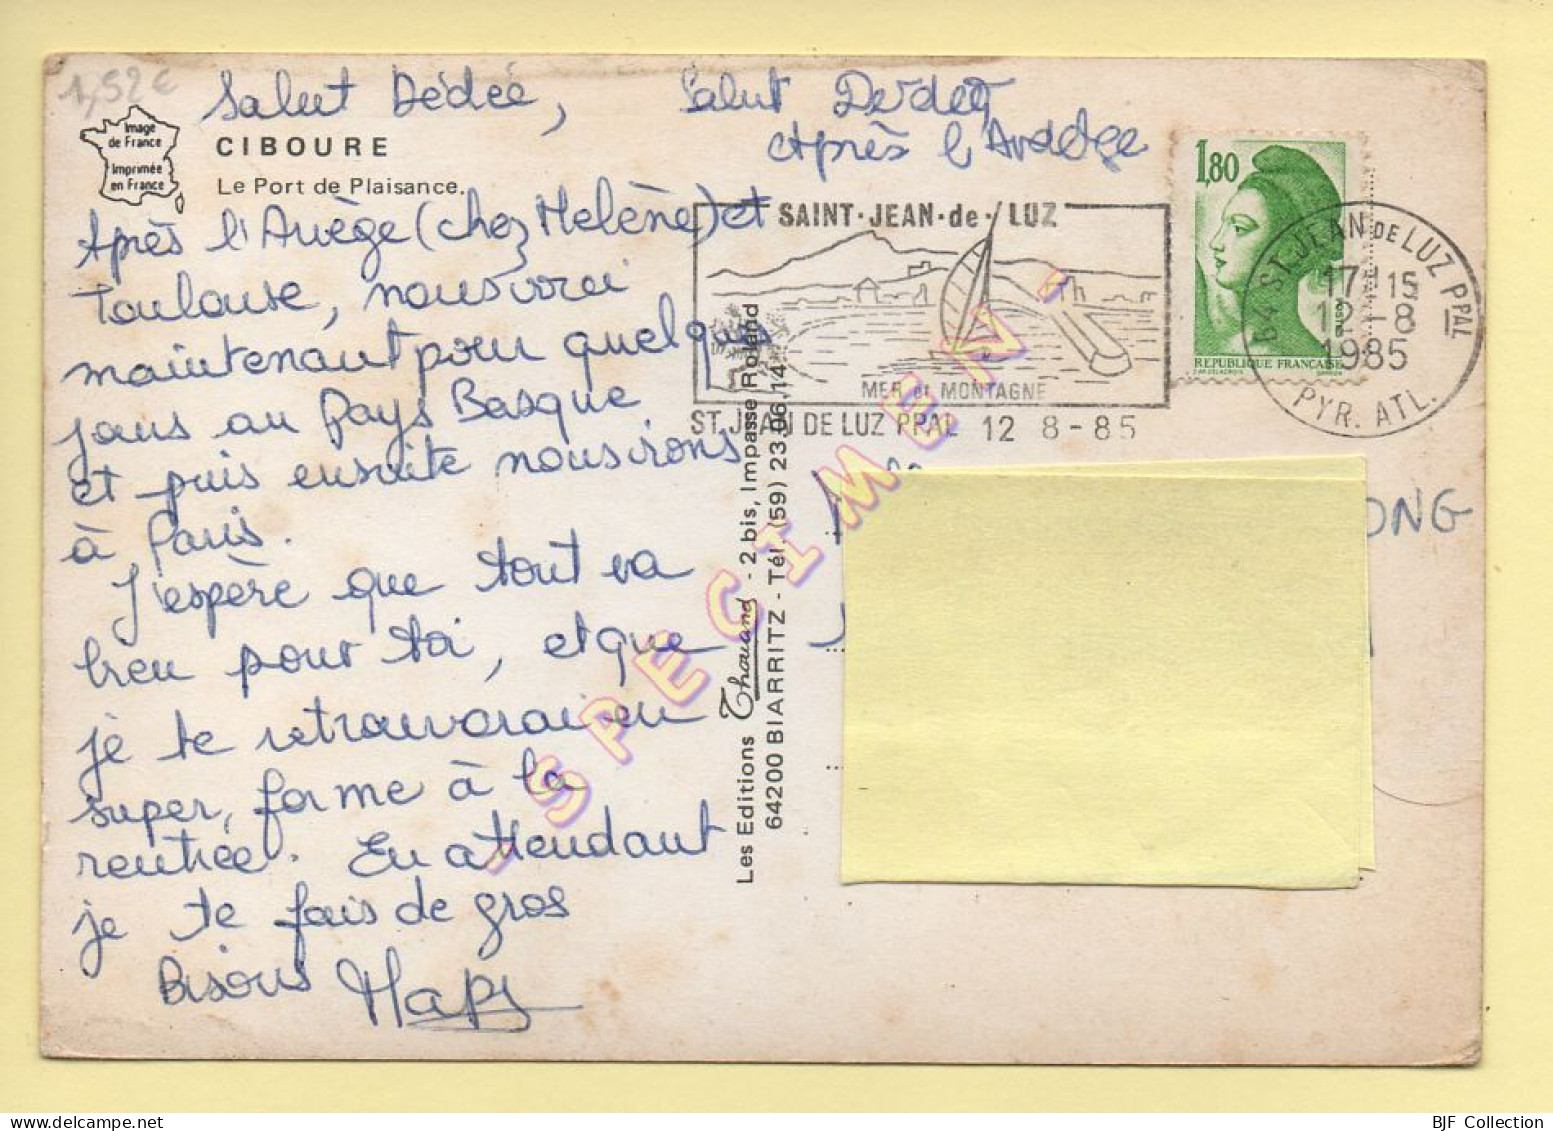 1,52€
Salut Dédée,
Salut
Après l'
Image
de France
Imprimée
en France
CIBOURE
Le Port de Plaisance.
Après l'Ariège (chez Helène) et
Toulouse, nous voici
maintenant pour quelques
jours au Pays Basque
et puis ensuite nous irons
à Paris.
J'espère que tout va
bien pour toi, et que
je te retrouverai en
super, forme à la
rentrée. En attendant
je te fais de gros
Bisous
Les Editions Thouand - 2 bis, Impasse Roland
64200 BIARRITZ - Tél. (59) 23.06.14
SPECIMEN
SAINT-JEAN-de-LUZ
MER et MONTAGNE
ST JEAN DE LUZ PPAL 12 8-85
1,80
POSTES
REPUBLIQUE FRANCAISE
64 ST JEAN DE LUZ PPAL
17H15
12-8
1985
PYR. ATL.
ONG
BJF Collection